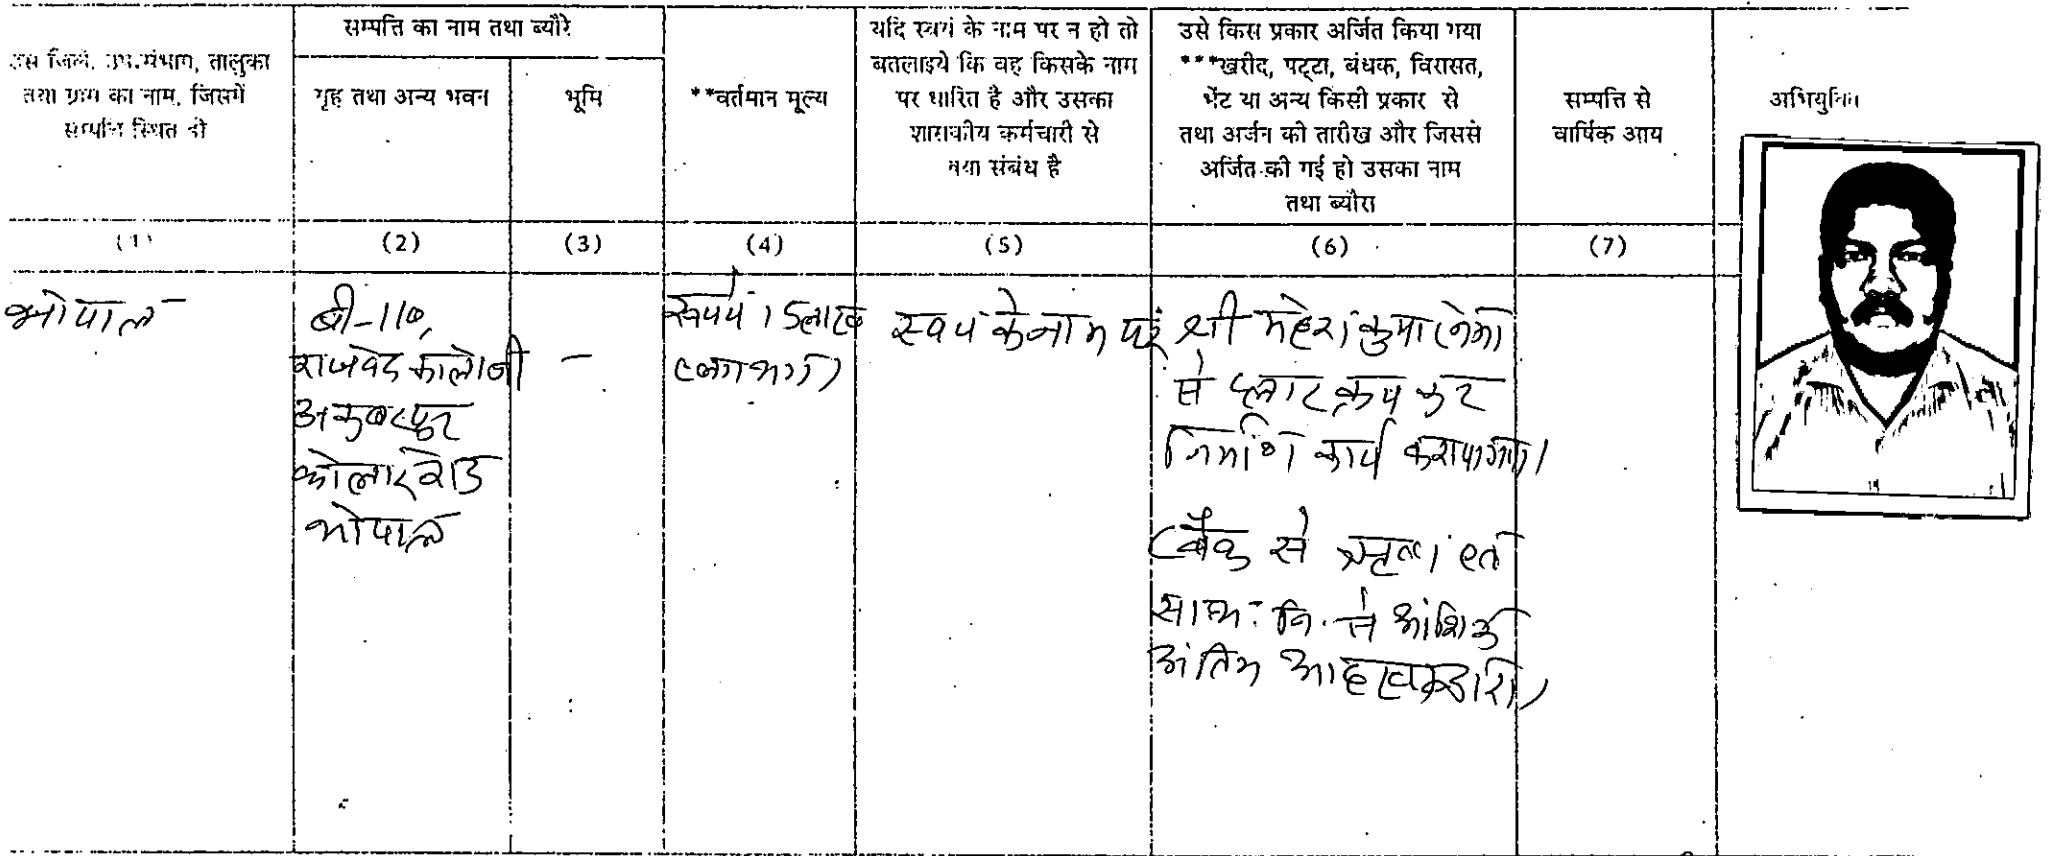 उस जिले, उप-संभाग, तालुका
तथा ग्राम का नाम, जिसमें
सम्पत्ति स्थित हो
सम्पत्ति का नाम तथा ब्यौरे
गृह तथा अन्य भवन
भूमि
**वर्तमान मूल्य
यदि स्वयं के नाम पर न हो तो
बतलाइये कि वह किसके नाम
पर धारित है और उसका
शासकीय कर्मचारी से
क्या संबंध है
उसे किस प्रकार अर्जित किया गया
***खरीद, पट्टा, बंधक, विरासत,
भेंट या अन्य किसी प्रकार से
तथा अर्जन की तारीख और जिससे
अर्जित की गई हो उसका नाम
तथा ब्यौरा
सम्पत्ति से
वार्षिक आय
अभियुक्ति
(1)
(2)
(3)
(4)
(5)
(6)
(7)
भोपाल
बी-110,
राजवेद कालोनी
अकबरपुर
कोलार रोड
भोपाल
–
रूपये 15लाख
(लगभग)
स्वयं के नाम पर
श्री महेश कुमार नेमा
से प्लाट क्रय कर
निर्माण कार्य कराया गया।
(बैंक से ऋण एवं
से आंशिक
अंतिम